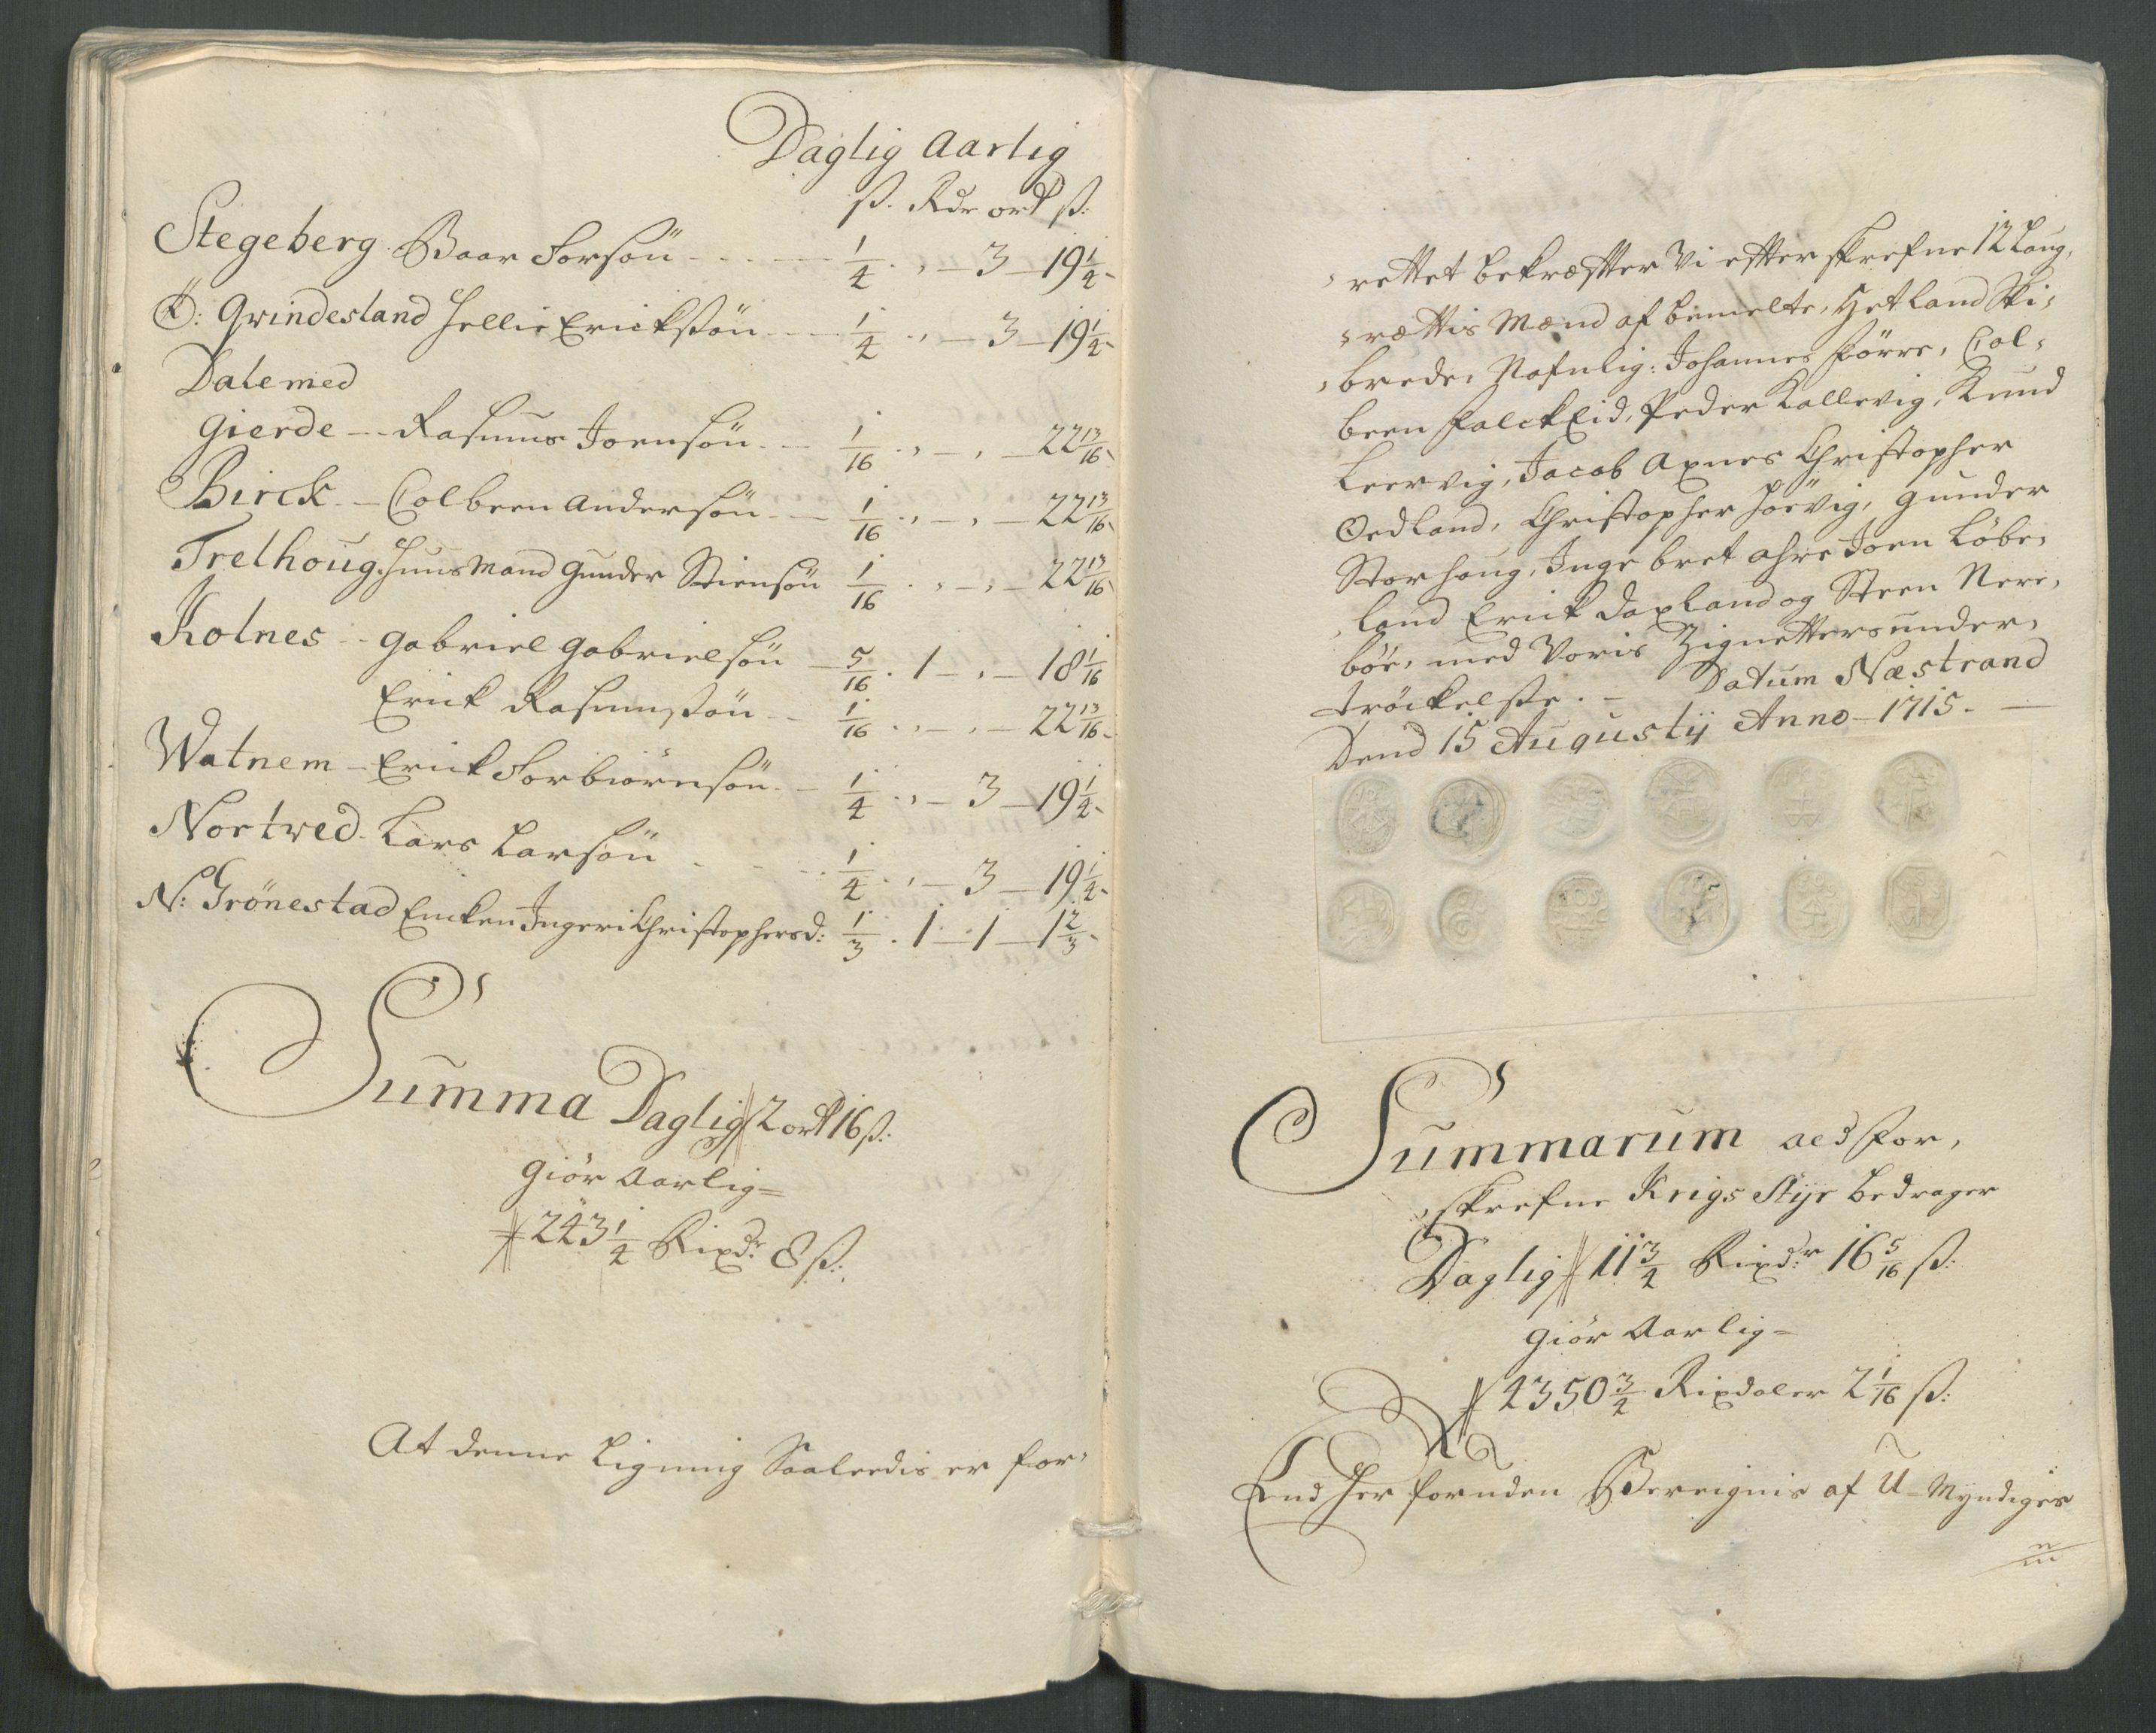 Daglig Aarlig
ß. Rdr ort ß:
Stegeberg Baar Torsön - - - 1/4 . , - 3 - 19 1/4 -
Ö: Qvindesland Hellie Erickssön - - 1/4 . , - 3 - 19 1/4 -
Dale med
Gierde - - Rasmus Joensön - - 1/16 . , - , - 22 13/16 -
Birck - - Colbeen Andersön - - 1/16 . , - , - 22 13/16 -
Trelhoug. Huusmand Gunder Stiensön 1/16 . , - , - 22 13/16
Kolnes - - Gabriel Gabrielsön - 5/16 . 1 - , - 18 1/16
Erick Rasmussön - - 1/16 . , - , - 22 13/16 -
Watnem - Erick Torbiörnsön - - 1/4 . , - 3 - 19 1/4 -
Nortved - Lars Larsön - - - 1/4 . , - 3 - 19 1/4 -
N: Grönestad Encken Ingeri Christophersd: 1/3 . 1 - 1 - 1 2/3 -
Summa Daglig 2 ort 16 ß:
Giör Aarlig =
243 1/4 Rixdr 8 ß:
At denne Ligning Saaledis er for,
,rettet bekræffter Vi effter skrefne 12 Laug,
,rættis Mænd af bemelte, Hetland Ski,
,brede, Nafnlig: Johannes Förre, Col,
been FalckEid, Peder Kallevig, Knud
Leervig, Jacob Axnes Christopher
Oedland, Christopher Höevig, Gunder
Storhoug, Ingebret Ahre Joen Löbe,
,land Erick Daxland og Steen Nere,
böe, med Voris Zignetters under,
tröckelsse. - Datum Næstrand
Dend 15 Augustij Anno 1715. -
Summarum aed for,
,skrefne Krigs Styr bedrager
Daglig 11 3/4 Rixdr 16 5/16 ß:
Giör Aarlig =
4350 3/4 Rixdaler 2 1/16 ß:
End her foruden Bereignis af U-Myndiges